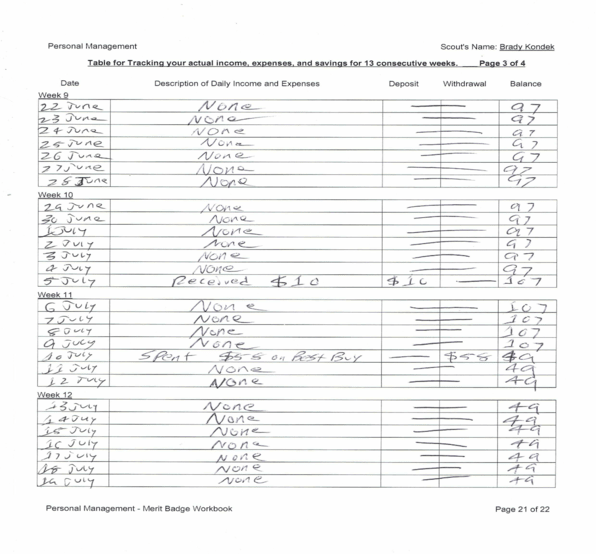 Personal Management Scout's Name: Brady Kondek
Table for Tracking your actual income, expenses, and savings for 13 consecutive weeks. Page 3 of 4
Date Description of Daily Income and Expenses Deposit Withdrawal Balance
Week 9
22 June None — — 97
23 June None — — 97
24 June None — — 97
25 June None — — 97
26 June None — — 97
27 June None — — 97
28 June None — — 97
Week 10
29 June None — — 97
30 June None — — 97
1 July None — — 97
2 July None — — 97
3 July None — — 97
4 July None — — 97
5 July Received $10 $10 — 107
Week 11
6 July None — — 107
7 July None — — 107
8 July None — — 107
9 July None — — 107
10 July Spent $58 on Best Buy — $58 49
11 July None — — 49
12 July None — — 49
Week 12
13 July None — — 49
14 July None — — 49
15 July None — — 49
16 July None — — 49
17 July None — — 49
18 July None — — 49
19 July None — — 49
Personal Management - Merit Badge Workbook Page 21 of 22